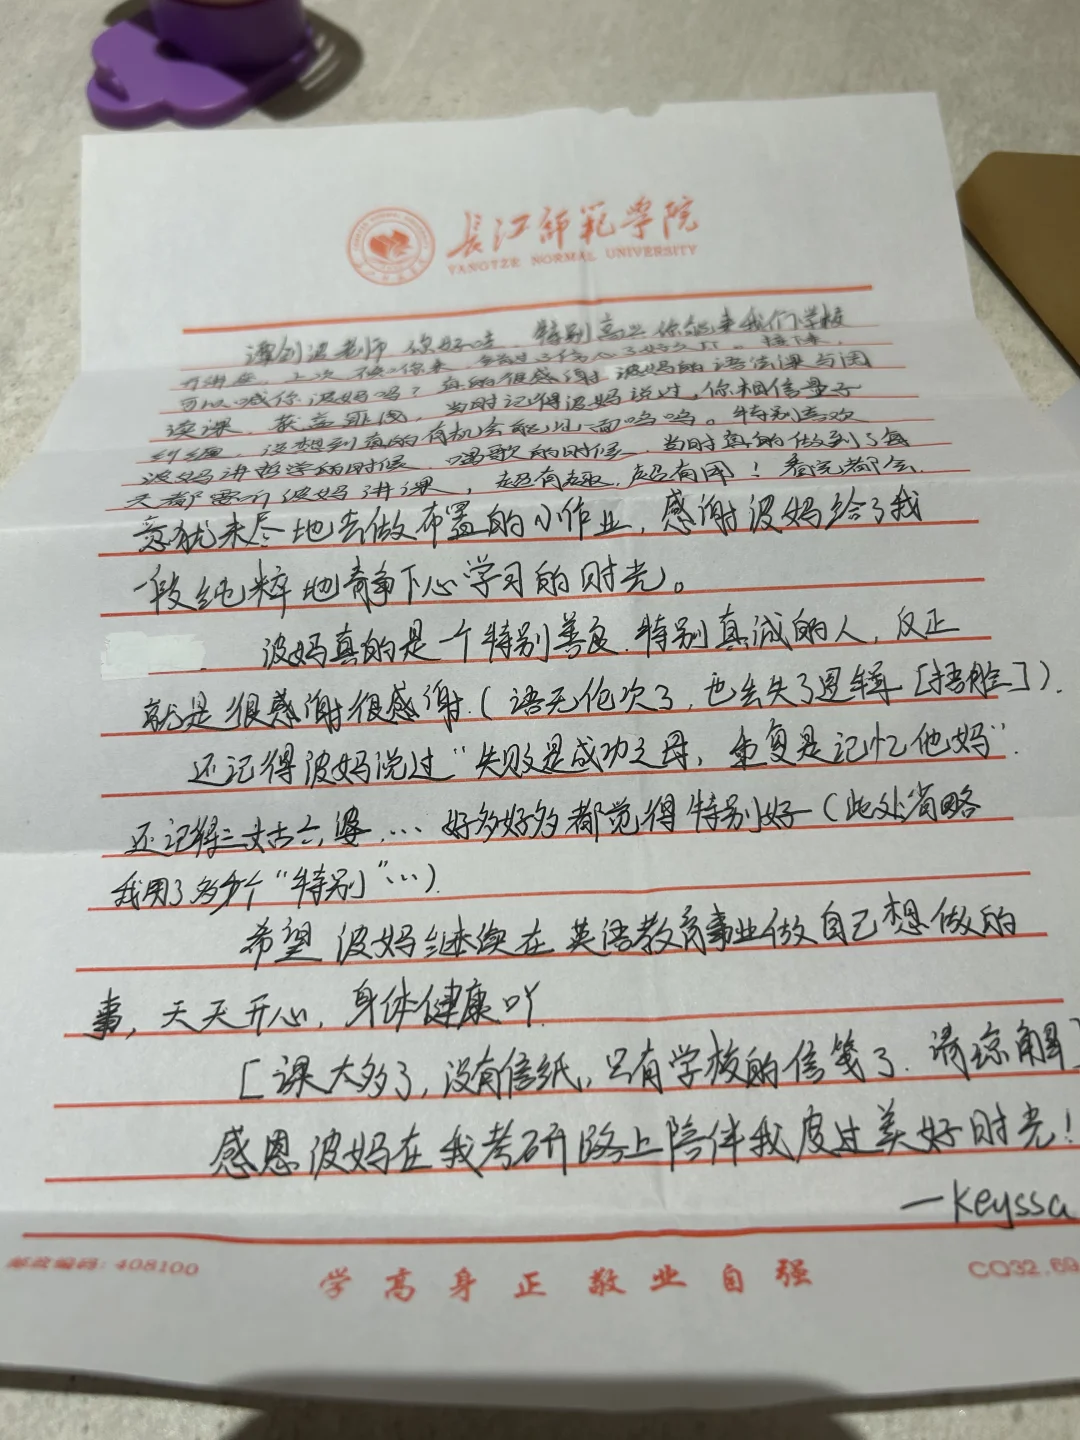 長江師範學院
YANGTZE NORMAL UNIVERSITY
谭剑波老师 你好哇，特别高兴你能来我们学校
开讲座，上次 你来，了好久了。接下来，
可以喊你波妈吗？真的很感谢波妈的语法课与阅
读课，获益匪浅，当时记得波妈说过，你相信量子
纠缠，没想到真的有机会能见一面呜呜。特别喜欢
波妈讲哲学的时候，唱歌的时候，当时真的做到了每
天都要听波妈讲课，超有趣，超有用！看完都会
意犹未尽地去做布置的小作业，感谢波妈给了我
一段纯粹地静下心学习的时光。
波妈真的是一个特别善良、特别真诚的人，反正
就是很感谢很感谢.(语无伦次了，也丢失了逻辑[捂脸]).
还记得波妈说过“失败是成功之母，重复是记忆他妈”.
还记得三姑六婆，… 好多好多都觉得特别好(此处省略
我用了多少个“特别”…).
希望波妈继续在英语教育事业做自己想做的
事，天天开心，身体健康吖.
[课太多了，没有信纸，只有学校的信笺了.请谅解]
感恩波妈在我考研路上陪伴我度过美好时光！
—Keyssa
邮政编码：408100
学高身正 敬业自强
CQ32.69